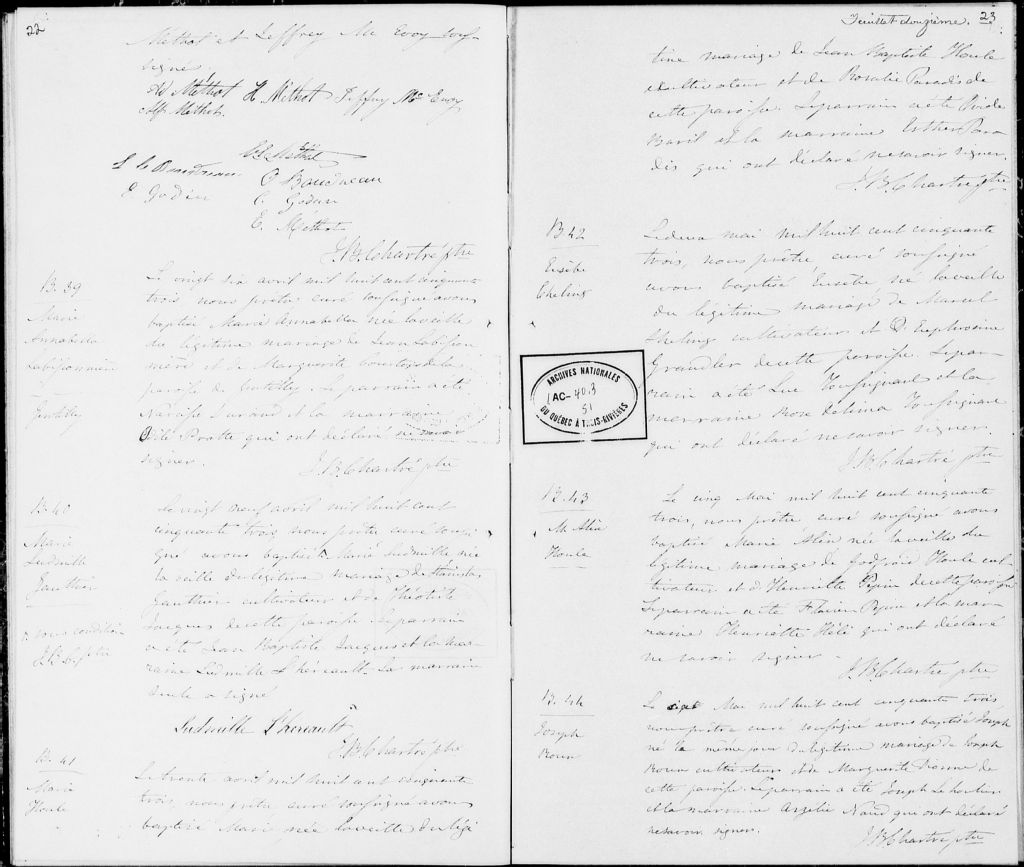 22
Methot et Jeffrey Mc Evoy sous-
signé
Méthot H Méthot Jeffrey Mc Evoy
Alf. Méthot.
Méthot
C Baudreau
E. Godin C. Godin
E. Méthot
J.B. Chartré ptre
B. 39
Marie
Annabella
Labissonnière
Gentilly
Le vingt six avril mil huit cent cinquante
trois nous prêtre curé soussigné avons
baptisé Marie Annabella née la veille
du légitime mariage de Jean Labisson
nière et de Marguerite de la
paroisse de Gentilly. Le parrain a été
Narcisse Durand et la marraine
Pratte qui ont déclaré ne savoir
signer.
J.B. Chartré ptre
B. 40
Marie
Ludmille
Gauthier
sous condition
J.B.C. ptre
Le vingt neuf avril mil huit cent
cinquante trois nous prêtre curé soussi
gné avons baptisé Marie Ludmille née
la veille du légitime mariage de Stanislas
Gauthier cultivateur et de Théotiste
Jacques de cette paroisse. Le parrain
a été Jean Baptiste Jacques et la mar-
raine Ludmille L'héreault. La marraine
seule a signé
Ludmille L'hereault
J.B. Chartré ptre
B. 41
Marie
Houle
Le trente avril mil huit cent cinquante
trois, nous prêtre curé soussigné avons
baptisé Marie née la veille du légi
Feuillet douzième. 23
time mariage de Jean Baptiste Houle
cultivateur et de Rosalie Paradis de
cette paroisse. Le parrain a été
Baril et la marraine Esther Para
dis qui ont déclaré ne savoir signer.
J.B. Chartré ptre
B 42
Eusèbe
Le deux mai mil huit cent cinquante
trois, nous prêtre curé soussigné
avons baptisé Eusèbe né la veille
du légitime mariage de Marcel
cultivateur et d'Euphrosine
de cette paroisse. Le par-
rain a été Luc Toussignant et la
marraine Rose Toussignant
qui ont déclaré ne savoir signer.
J.B. Chartré ptre
ARCHIVES NATIONALES
AC- 403
51
DU QUÉBEC À TROIS-RIVIÈRES
B. 43
M.
Houle
Le cinq Mai mil huit cent cinquante
trois, nous prêtre curé soussigné avons
baptisé Marie née la veille du
légitime mariage de Godfroid Houle cul
tivateur et d'Henriette Pepin de cette paroisse
Le parrain a été Pepin et la mar-
raine Henriette qui ont déclaré
ne savoir signer.
J.B. Chartré ptre
B. 44
Joseph
Le sept Mai mil huit cent cinquante trois
nous prêtre curé soussigné avons baptisé Joseph
né le même jour du légitime mariage de Joseph
cultivateur et de Marguerite Dionne de
cette paroisse. Le parrain a été Joseph
et la marraine Angelie Naud qui ont déclaré
ne savoir signer.
J.B. Chartré ptre